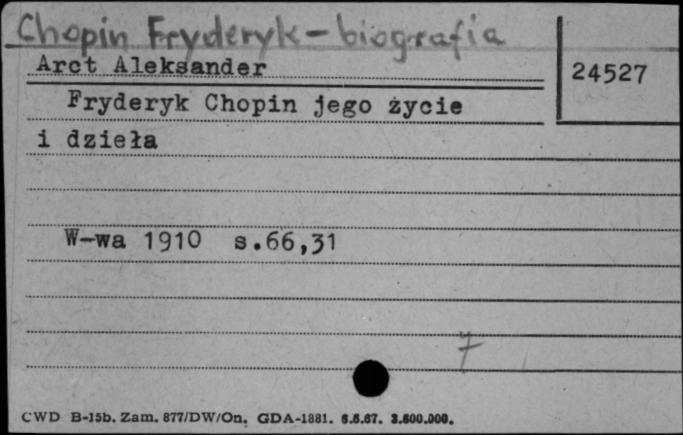 Chopin Fryderyk - biografia
Arct Aleksander
24527
Fryderyk Chopin jego życie
i dzieła
W-wa 1910 s.66,31
7
CWD B-15b. Zam. 877/DW/On. GDA-1881. 6.6.67. 3.600.000.